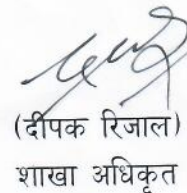 (दीपक रिजाल)
शाखा अधिकृत